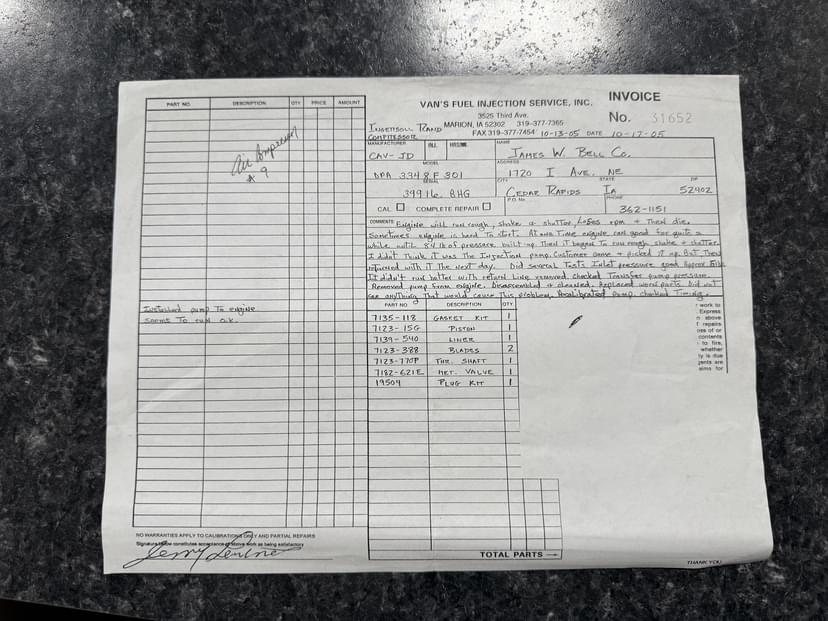 VAN'S FUEL INJECTION SERVICE, INC.
3525 Third Ave.
MARION, IA 52302 319-377-7365
FAX 319-377-7454
INVOICE
No. 31652
10-13-05 DATE 10-17-05
INGERSOLL RAND
COMPRESSOR
MANUFACTURER
CAV-JD
MODEL
DPA 3348F801
SERIAL
39916 BHG
CAL COMPLETE REPAIR
NAME
JAMES W. BELL CO.
ADDRESS
1720 I AVE. NE
CITY STATE ZIP
CEDAR RAPIDS IA 52402
P.O. No. PHONE
362-1151
COMMENTS Engine will run rough, shake & shutter, Loses rpm & Then die.
Sometimes engine is hard To start. At one Time engine ran good for quite a
while until 84 lb of pressure built up Then it began To run rough, shake & shutter.
I didn't Think it was The Injection pump. Customer came & picked it up. But Then
returned with it The next day. Did several Tests Inlet pressure good Approx
It didn't run better with return Line removed. Checked Transfer pump pressure.
Removed pump from engine. Disassembled & cleaned. Replaced worn parts. Did not
see anything That would cause This problem. Recalibrated pump, checked Timing.
PART NO. DESCRIPTION QTY PRICE AMOUNT
Air Compressor
# 9
Installed pump To engine
seems To run o.k.
PART NO DESCRIPTION QTY.
7135-118 GASKET KIT 1
7123-15G PISTON 1
7139-540 LINER 1
7123-388 BLADES 2
7123-770P THR. SHAFT 1
7182-621E MET. VALVE 1
19504 PLUG KIT 1
work to
Express
above
f repairs
oss of or
contents
to fire,
whether
ty is due
gents are
aims for
NO WARRANTIES APPLY TO CALIBRATIONS ONLY AND PARTIAL REPAIRS
Signature below constitutes acceptance of above work as being satisfactory
TOTAL PARTS →
THANK YOU